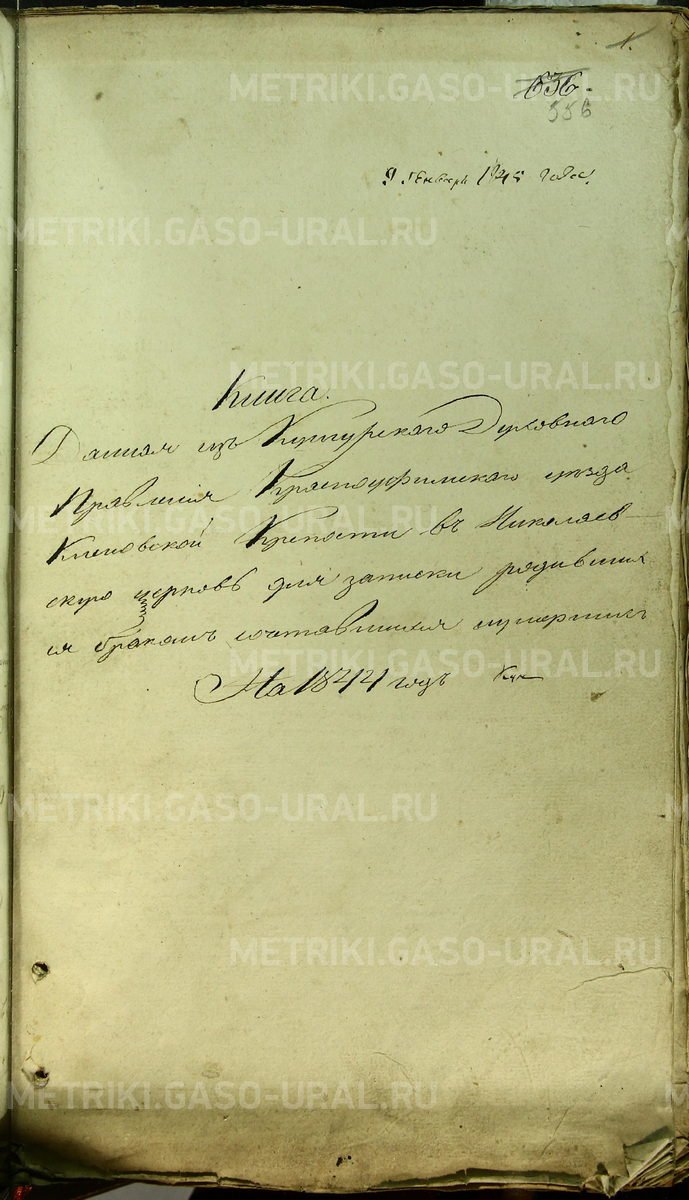 1.
636.
556
9 Генваря 1845 года.
Книга.
Данная изъ Кунгурскаго Духовнаго
Правления Красноуфимскаго уезда
Кленовской Крепости въ Николаев-
скую церковь для записки родивших
ся браком сочетавшихся и умерших
На 1844 годъ
METRIKI.GASO-URAL.RU
METRIKI.GASO-URAL.RU
METRIKI.GASO-URAL.RU
METRIKI.GASO-URAL.RU
METRIKI.GASO-URAL.RU
METRIKI.GASO-URAL.RU
METRIKI.GASO-URAL.RU
METRIKI.GASO-URAL.RU